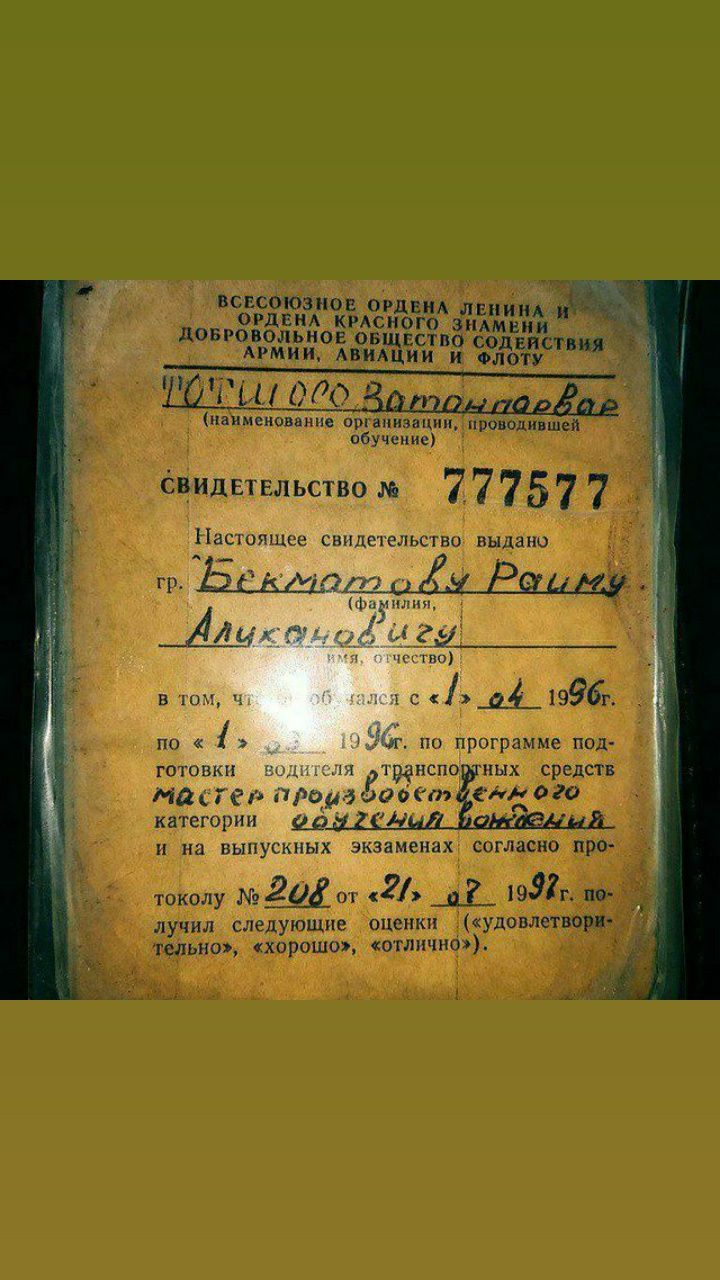 ВСЕСОЮЗНОЕ ОРДЕНА ЛЕНИНА И
ОРДЕНА КРАСНОГО ЗНАМЕНИ
ДОБРОВОЛЬНОЕ ОБЩЕСТВО СОДЕЙСТВИЯ
АРМИИ, АВИАЦИИ И ФЛОТУ
ТОТШ ОСО Ватанпарвар
(наименование организации, проводившей
обучение)
СВИДЕТЕЛЬСТВО № 777577
Настоящее свидетельство выдано
гр. Бекматову Раиму
(фамилия,
Аликановичу
имя, отчество)
в том, обучался с «1» 04 1996г.
по «1» 1996г. по программе под-
готовки водителя транспортных средств
мастер производственного
категории обучения вождения
и на выпускных экзаменах согласно про-
токолу № 208 от «21» 07 1997г. по-
лучил следующие оценки («удовлетвори-
тельно», «хорошо», «отлично»).